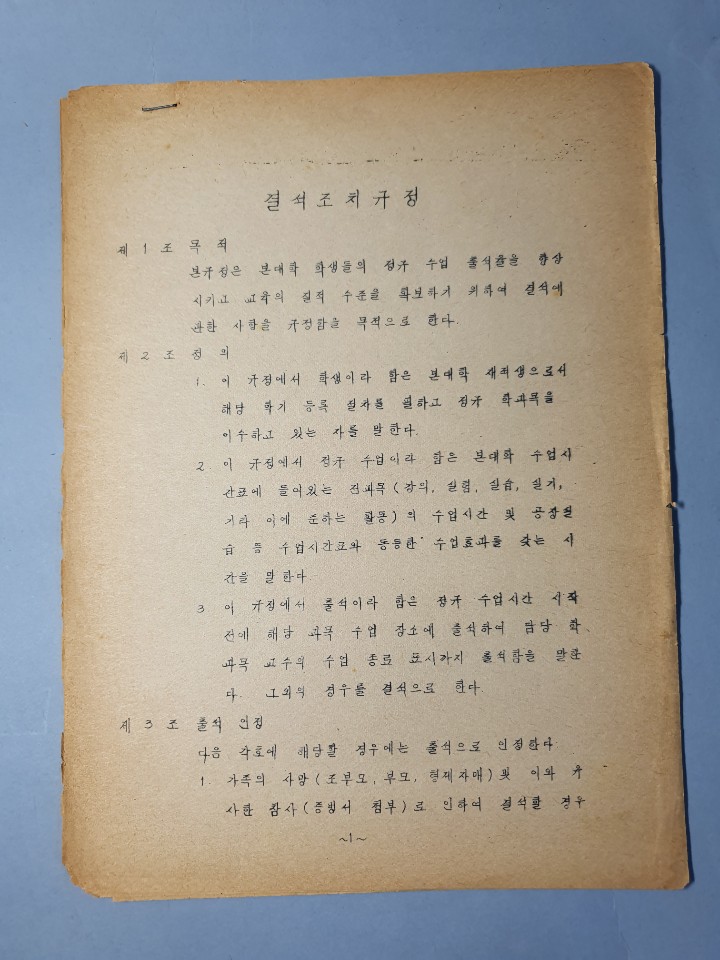 결석조치규정
제 1 조 목 적
본규정은 본대학 학생들의 정규 수업 출석율을 향상
시키고 교육의 질적 수준을 확보하기 위하여 결석에
관한 사항을 규정함을 목적으로 한다.
제 2 조 정 의
1. 이 규정에서 학생이라 함은 본대학 재적생으로서
해당 학기 등록 절차를 필하고 정규 학과목을
이수하고 있는 자를 말한다.
2. 이 규정에서 정규 수업이라 함은 본대학 수업시
간표에 들어있는 전과목 (강의, 실험, 실습, 실기,
기타 이에 준하는 활동) 의 수업시간 및 공장실
습 등 수업시간표와 동등한 수업효과를 갖는 시
간을 말한다
3 이 규정에서 출석이라 함은 정규 수업시간 시작
전에 해당 과목 수업 장소에 출석하여 담당 학
과목 교수의 수업 종료 표시까지 출석함을 말한
다. 그외의 경우를 결석으로 한다.
제 3 조 출석 인정
다음 각호에 해당할 경우에는 출석으로 인정한다
1. 가족의 사망 (조부모, 부모, 형제자매) 및 이와 유
사한 참사 (증빙서 첨부) 로 인하여 결석할 경우
~1~